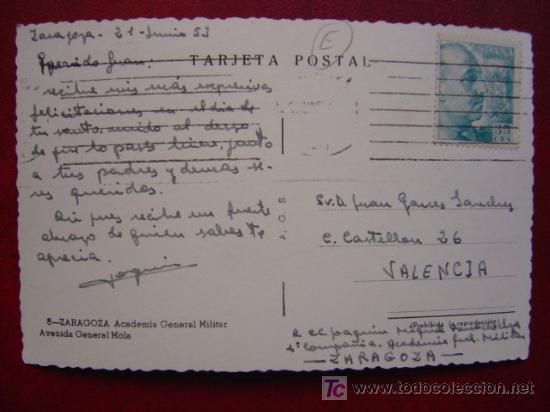 Zaragoza - 21 - Junio 53
(E)
TARJETA POSTAL
Querido Juan:
recibe mis más expresivas
felicitaciones en el día de
tu santo, unido al deseo
de que lo pases bien, junto
a tus padres y demás se-
res queridos.
Así pues recibe un fuerte
abrazo de quien sabes te
aprecia.
Joaquin
ESPAÑA
A. C. S
Sr. D. Juan Garces Sanchez
C. Castellon 26
VALENCIA
8-ZARAGOZA Academia General Militar
Avenida General Mola
(Prohibida la reproducción)
R. CC. Joaquin Miguel
4ª Compañia. Academia Gral. Militar
- ZARAGOZA -
TC www.todocoleccion.net